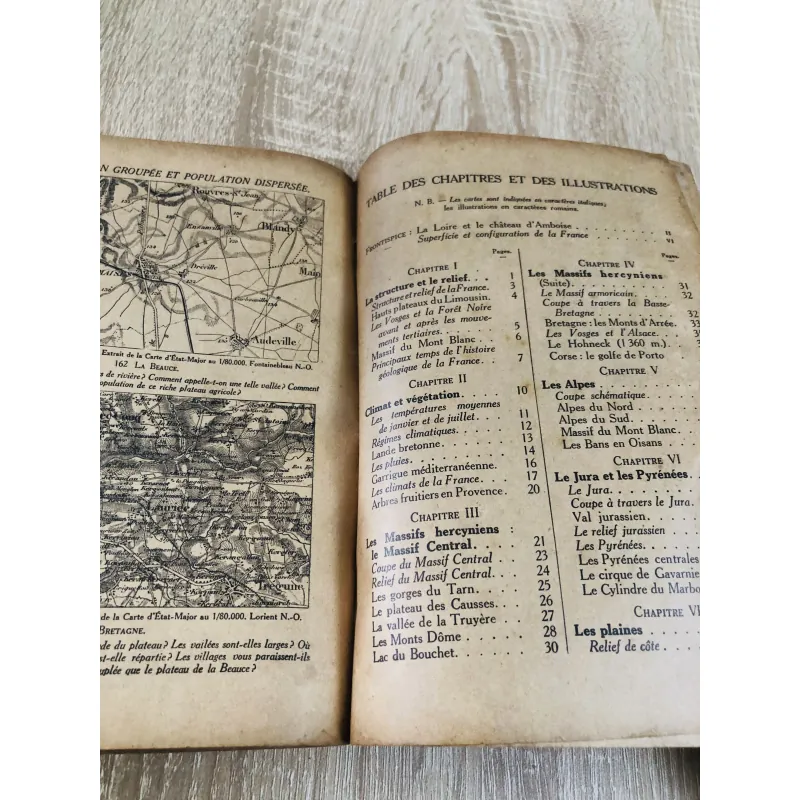 N GROUPÉE ET POPULATION DISPERSÉE.
Rouvres-St Jean
Blandy
Main
Audeville
Extrait de la Carte d'État-Major au 1/80.000. Fontainebleau N.-O.
162 LA BEAUCE.
s de rivière? Comment appelle-t-on une telle vallée? Comment
population de ce riche plateau agricole?
de la Carte d'État-Major au 1/80.000. Lorient N.-O.
BRETAGNE.
de du plateau? Les vallées sont-elles larges? Où
est-elle répartie? Les villages vous paraissent-ils
uplée que le plateau de la Beauce?
TABLE DES CHAPITRES ET DES ILLUSTRATIONS
N. B. — Les cartes sont indiquées en caractères italiques;
les illustrations en caractères romains.
FRONTISPICE : La Loire et le château d'Amboise II
Superficie et configuration de la France VI
Pages.
CHAPITRE I
La structure et le relief. 1
Structure et relief de la France. 3
Hauts plateaux du Limousin. 4
Les Vosges et la Forêt Noire
avant et après les mouve-
ments tertiaires. 5
Massif du Mont Blanc 6
Principaux temps de l'histoire
géologique de la France. 7
CHAPITRE II
Climat et végétation. 10
Les températures moyennes
de janvier et de juillet. 11
Régimes climatiques. 12
Lande bretonne. 13
Les pluies. 14
Garrigue méditerranéenne. 16
Les climats de la France. 17
Arbres fruitiers en Provence. 20
CHAPITRE III
Les Massifs hercyniens :
le Massif Central. 21
Coupe du Massif Central 23
Relief du Massif Central. 24
Les gorges du Tarn. 25
Le plateau des Causses. 26
La vallée de la Truyère 27
Les Monts Dôme 28
Lac du Bouchet. 30
Pages.
CHAPITRE IV
Les Massifs hercyniens
(Suite). 31
Le Massif armoricain. 32
Coupe à travers la Basse-
Bretagne 32
Bretagne : les Monts d'Arrée. 33
Les Vosges et l'Alsace.
Le Hohneck (1 360 m.)
Corse : le golfe de Porto
CHAPITRE V
Les Alpes
Coupe schématique.
Alpes du Nord
Alpes du Sud.
Massif du Mont Blanc
Les Bans en Oisans
CHAPITRE VI
Le Jura et les Pyrénées.
Le Jura.
Coupe à travers le Jura.
Val jurassien
Le relief jurassien
Les Pyrénées.
Les Pyrénées centrales
Le cirque de Gavarnie
Le Cylindre du Marbo
CHAPITRE VI
Les plaines
Relief de côte